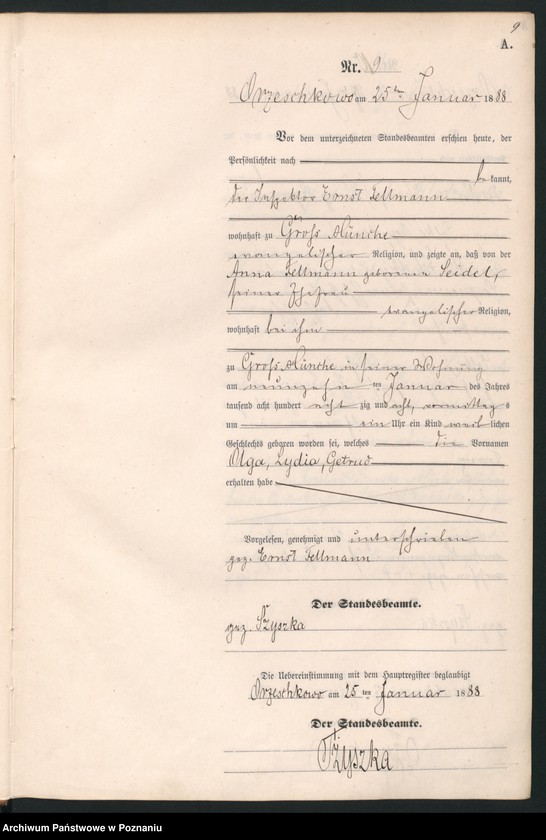 9
A.
Nr. 9
Orzeschkowo am 25ten Januar 1888
Vor dem unterzeichneten Standesbeamten erschien heute, der
Persönlichkeit nach
bekannt,
der Inspektor Ernst Tellmann
wohnhaft zu Gross Münche
evangelischer Religion, und zeigte an, daß von der
Anna Tellmann geborenen Seidel,
seiner Ehefrau
evangelischer Religion,
wohnhaft bei ihm
zu Gross Münche in seiner Wohnung
am neunzehn ten Januar des Jahres
tausend acht hundert acht zig und acht, vormittags
um ein Uhr ein Kind weiblichen
Geschlechts geboren worden sei, welches die Vornamen
Olga, Lydia, Getrud
erhalten habe
Vorgelesen, genehmigt und unterschrieben
gez. Ernst Tellmann
Der Standesbeamte.
gez. Szyszka
Die Uebereinstimmung mit dem Hauptregister beglaubigt
Orzeschkowo am 25ten Januar 1888
Der Standesbeamte.
Szyszka
Archiwum Państwowe w Poznaniu